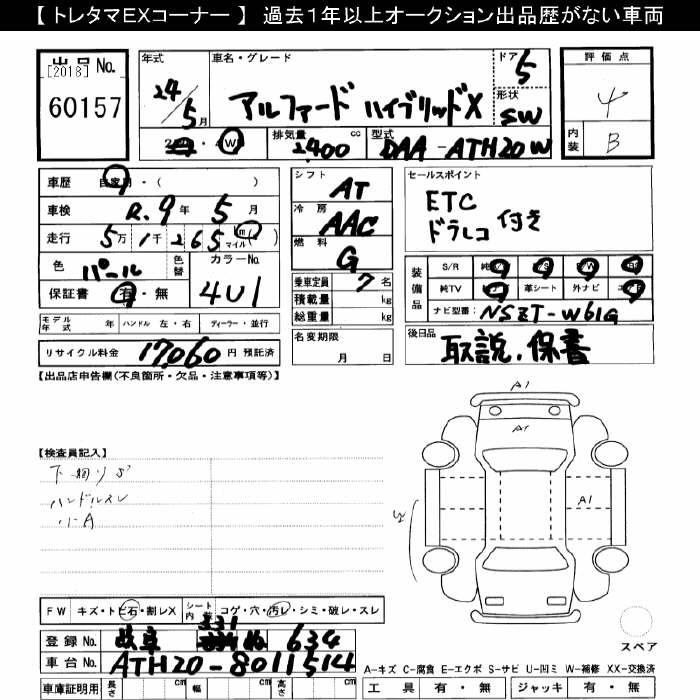 【 トレタマEXコーナー 】 過去1年以上オークション出品歴がない車両
出品 No.
[2018]
60157
年式
24/5月
車名・グレード
アルファード ハイブリッドX
ドア 5
形状 SW
4W
排気量 2400 cc
型式 DAA-ATH20W
評価点
4
内装 B
車歴 自家用・( )
車検 R.9年 5月
走行 5万1千265 km マイル( )
色 パール 色替
カラーNo. 4U1
保証書 有・無
シフト AT
冷房 AAC
燃料 G
乗車定員 7名
積載量 kg
総重量 kg
セールスポイント
ETC
ドラレコ 付き
装備品
S/R
純TV 革シート 外ナビ
ナビ型番: NSZT-W61G
モデル年式 年 ハンドル 左・右 ディーラー・並行
名変期限 月 日
後日品 取説、保書
リサイクル料金 17,060 円 預託済
【出品店申告欄(不良箇所・欠品・注意事項等)】
【検査員記入】
ハンドルスレ
小A
A1
A1
A1
W
FW キズ・トビ石・割レX
シート内 コゲ・穴・汚レ・シミ・破レ・スレ
登録 No. 岐阜 331 ぬ 634
車台 No. ATH20-8011514
車庫証明用 長さ cm 幅 cm 高さ cm
スペア
A-キズ C-腐食 E-エクボ S-サビ U-凹ミ W-補修 XX-交換済
工具 有・無 ジャッキ 有・無